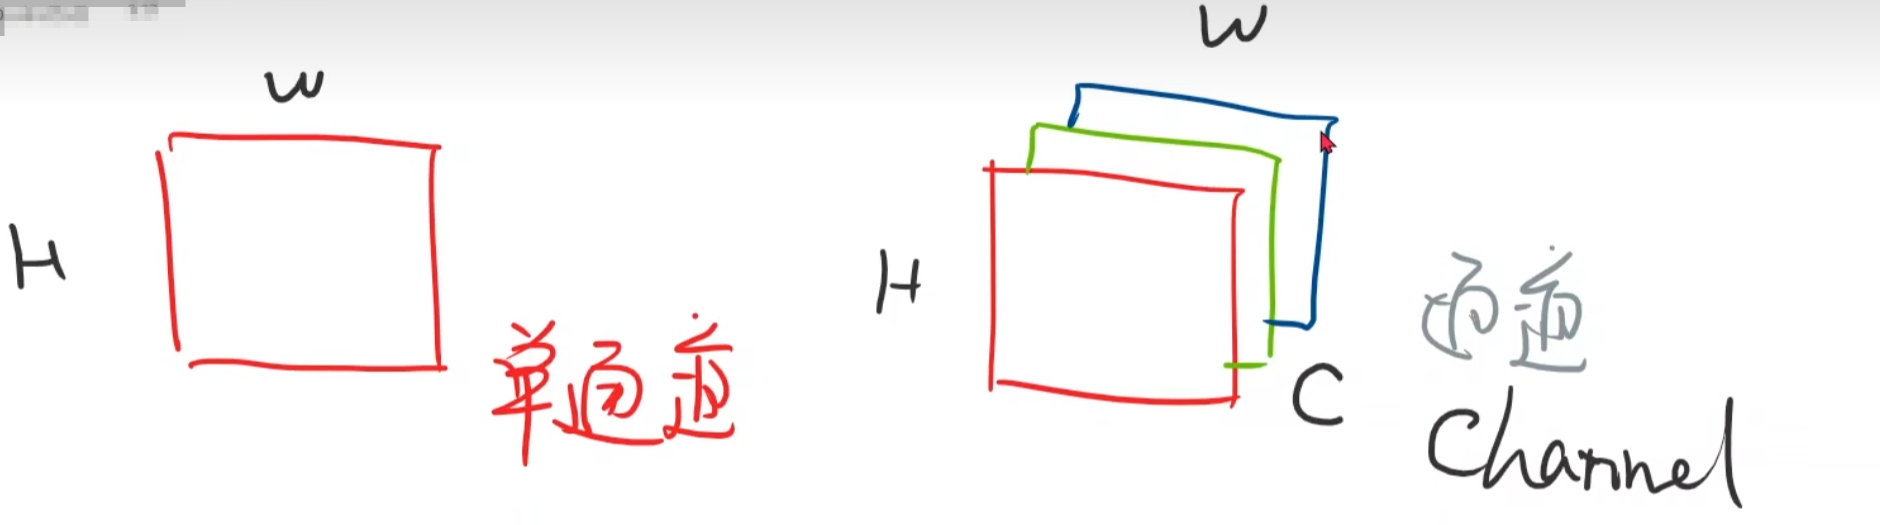 W
H
单通道
W
H
C
通道
Channel